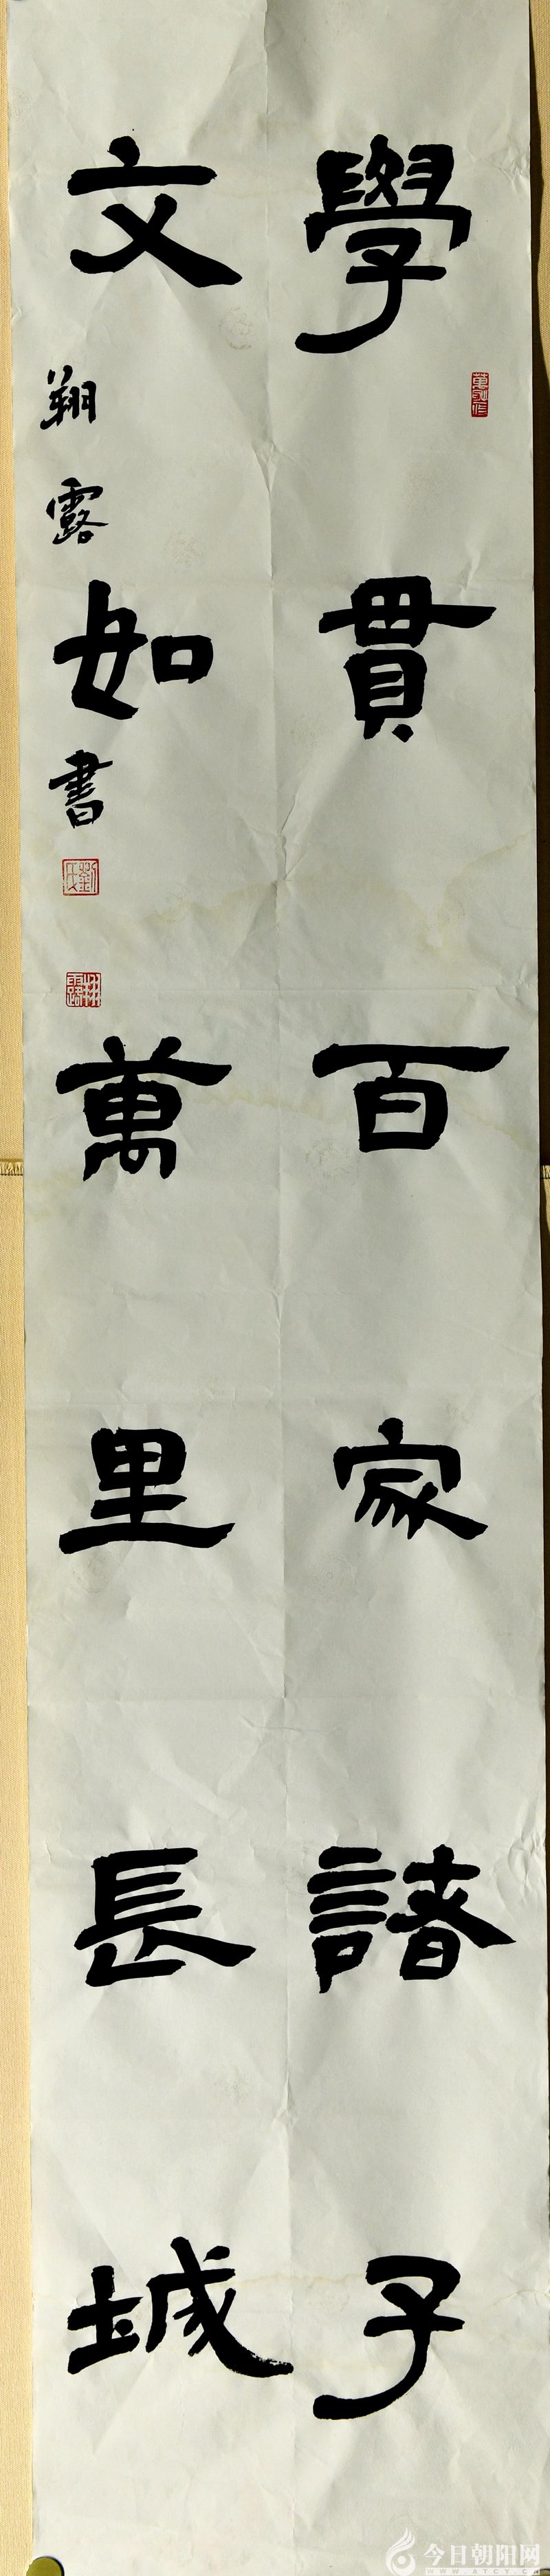 學貫百家諸子
文如萬里長城
翔露書
劉氏
今日朝阳网
WWW.ATCY.CN